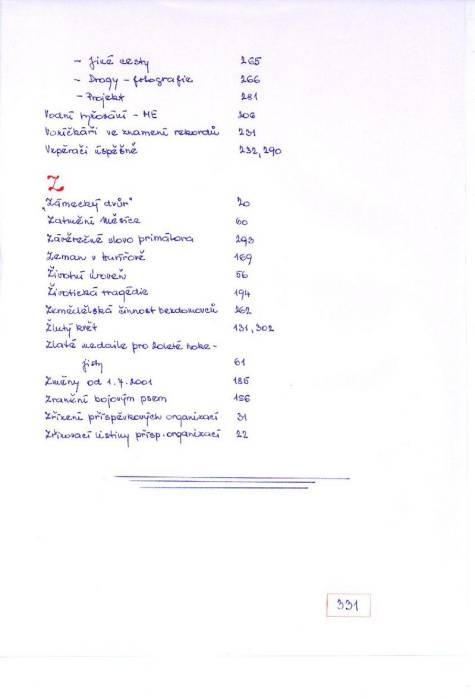 - Jiné cesty 265
- Drogy - fotografie 266
- Projekt 281
Vodní lyžování - ME 206
Vozíčkáři ve znamení rekordů 231
Vzpěrači úspěšně 232, 290
Z
"Zámecký dvůr" 20
Zatmění Měsíce 60
Závěrečné slovo primátora 293
Zeman v Karviné 169
Životní úroveň 56
Životická tragédie 194
Zemědělská činnost bezdomovců 262
Žlutý květ 131, 302
Zlaté medaile pro 20leté hoke-
jisty 61
Změny od 1.7.2001 185
Zranění bojovým psem 156
Zřízení příspěvkových organizací 31
Zřizovací listiny přísp. organizací 22
331